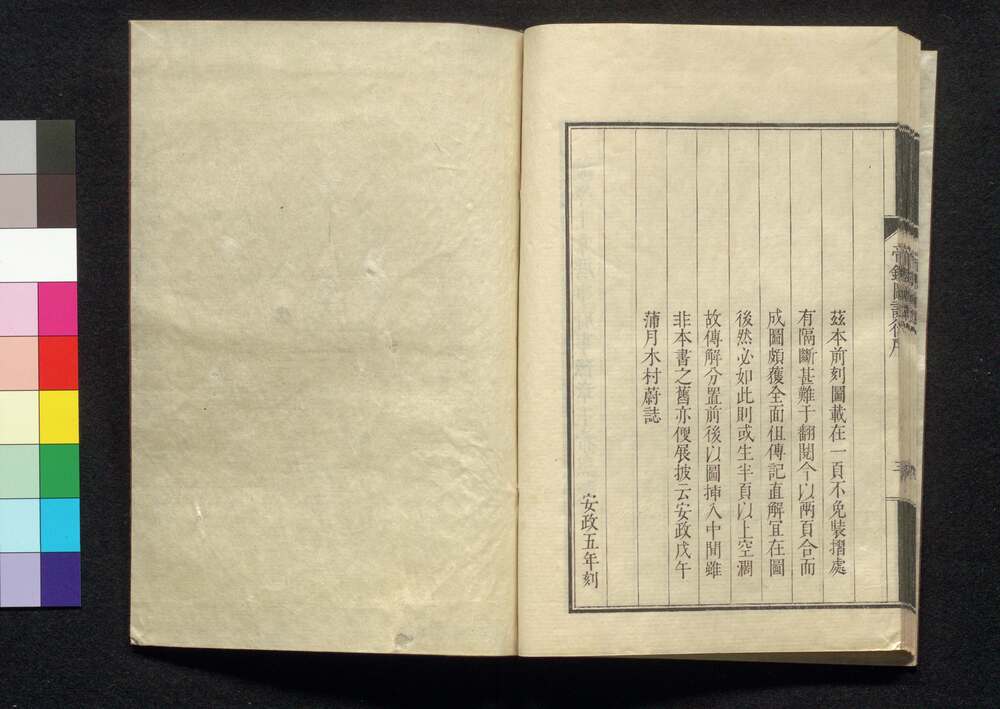 茲本前刻圖載在一頁不免裝摺處
有隔斷甚難于翻閱今以兩頁合而
成圖頗獲全面但傳記直解宜在圖
後然必如此則或生半頁以上空濶
故傳解分置前後以圖揷入中間雖
非本書之舊亦便展披云安政戊午
蒲月木村蔚誌
安政五年刻
帝鑑圖說後序
三